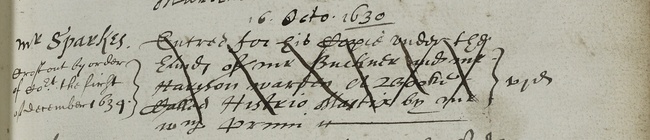 16. Octo. 1630
mr Sparkes.
Entred for his Copie vnder the
hands of mr Buckner and mr
Harison warden A Booke
called Histrio Mastix by mr
willm Prynn
vjd
Crost out by order
of Cort. the first
of december 1634.